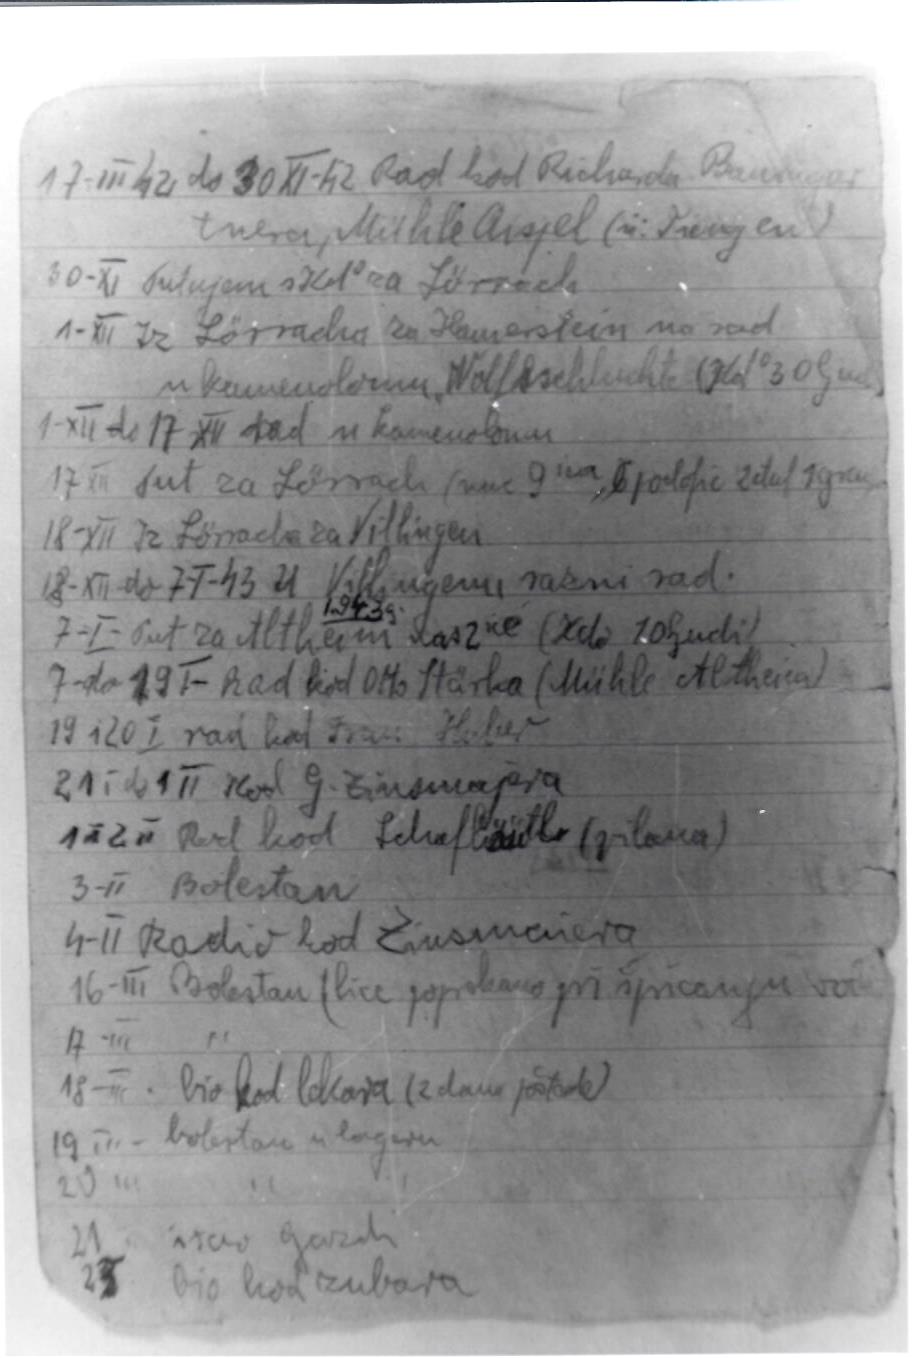 17-III 42 do 30 XI-42 Rad kod Richarda Baumgar
tnera, Mühle Aispel (ü: Tiengen)
30-XI Putujem s Kdo za Lörrach
1-XII Iz Lörracha za Hamerstein na rad
u kamenolomu „Wolfsschluchte (Kdo 30 ljudi
1-XII do 17-XII rad u kamenolomu
17 XII Put za Lörrach
18-XII Iz Lörracha za Villingen
18-XII do 7-I-43 U Villingenu razni rad.
1943g.
7-I- Put za Altheim (Kdo 10 ljudi)
7-do 19 I- Rad kod Otto Stärka (Mühle Altheim)
19 i 20 I rad kod Frau Huber
21 I do 1 II Kod G. Zinsmajera
1 i 2 II Rad kod (pilana)
3-II Bolestan
4-II Radio kod Zinsmaiera
16-III Bolestan (lice poprskano pri špricanju
17-III "
18-III. bio kod lekara (2 dana poštede)
19 III- bolestan u lageru
20 III " "
21 gazdi
23 bio kod zubara